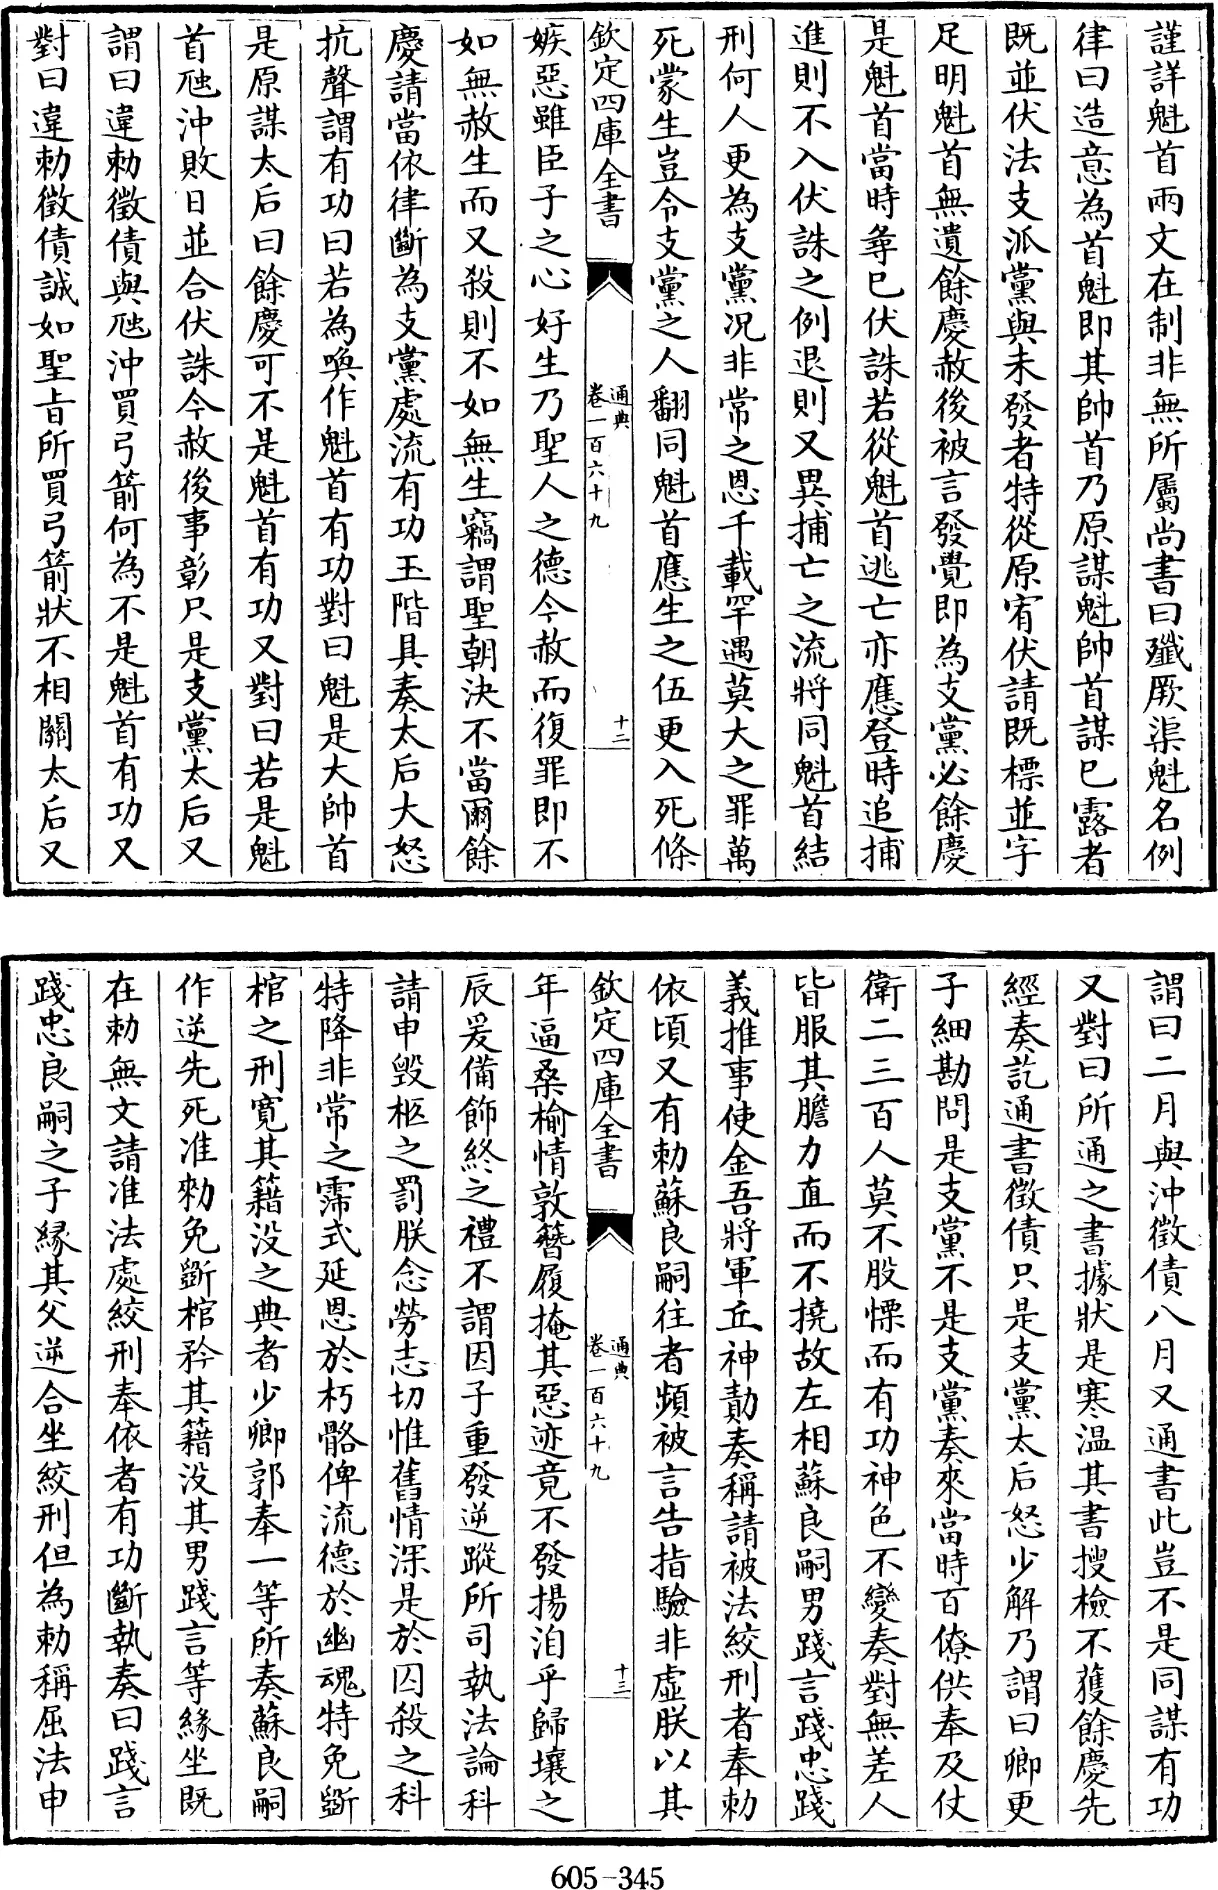 謹詳魁首兩文在制非無所屬尚書曰殲厥渠魁名例
律曰造意為首魁即其帥首乃原謀魁帥首謀已露者
既並伏法支派黨與未發者特從原宥伏請既標並字
足明魁首無遺餘慶赦後被言發覺即為支黨必餘慶
是魁首當時尋已伏誅若從魁首逃亡亦應登時追捕
進則不入伏誅之例退則又異捕亡之流將同魁首結
刑何人更為支黨況非常之恩千載罕遇莫大之罪萬
死蒙生豈令支黨之人翻同魁首應生之伍更入死條
欽定四庫全書 通典 卷一百六十九 十二
嫉惡雖臣子之心好生乃聖人之德今赦而復罪即不
如無赦生而又殺則不如無生竊謂聖朝決不當爾餘
慶請當依律斷為支黨處流有功玉階具奏太后大怒
抗聲謂有功曰若為喚作魁首有功對曰魁是大帥首
是原謀太后曰餘慶可不是魁首有功又對曰若是魁
首虺沖敗日並合伏誅今赦後事彰只是支黨太后又
謂曰違勅徵債與虺沖買弓箭何為不是魁首有功又
對曰違勅徵債誠如聖旨所買弓箭狀不相關太后又
謂曰二月與沖徵債八月又通書此豈不是同謀有功
又對曰所通之書據狀是寒溫其書搜檢不獲餘慶先
經奏訖通書徵債只是支黨太后怒少解乃謂曰卿更
子細勘問是支黨不是支黨奏來當時百僚供奉及仗
衛二三百人莫不股慄而有功神色不變奏對無差人
皆服其膽力直而不撓故左相蘇良嗣男踐言踐忠踐
義推事使金吾將軍丘神勣奏稱請被法絞刑者奉勅
依頃又有勅蘇良嗣往者頻被言告指驗非虛朕以其
欽定四庫全書 通典 卷一百六十九 十三
年逼桑榆情敦簪履掩其惡迹竟不發揚洎乎歸壤之
辰爰備飾終之禮不謂因子重發逆蹤所司執法論科
請申毀柩之罰朕念勞志切惟舊情深是於囚殺之科
特降非常之霈式延恩於朽骼俾流德於幽魂特免斲
棺之刑寬其籍没之典者少卿郭奉一等所奏蘇良嗣
作逆先死准勑免斲棺矜其籍没其男踐言等緣坐既
在勅無文請准法處絞刑奉依者有功斷執奏曰踐言
踐忠良嗣之子緣其父逆合坐絞刑但為勅稱屈法申
605-345